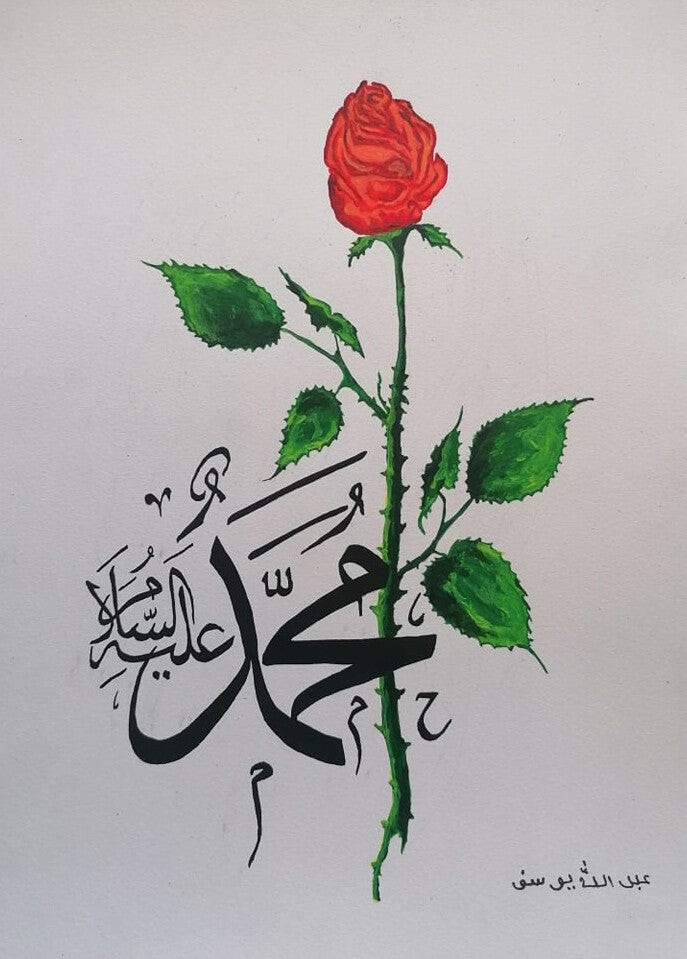 مُحَمَّدٌ
عَلَيْهِ السَّلَامُ
عبد الله يوسف